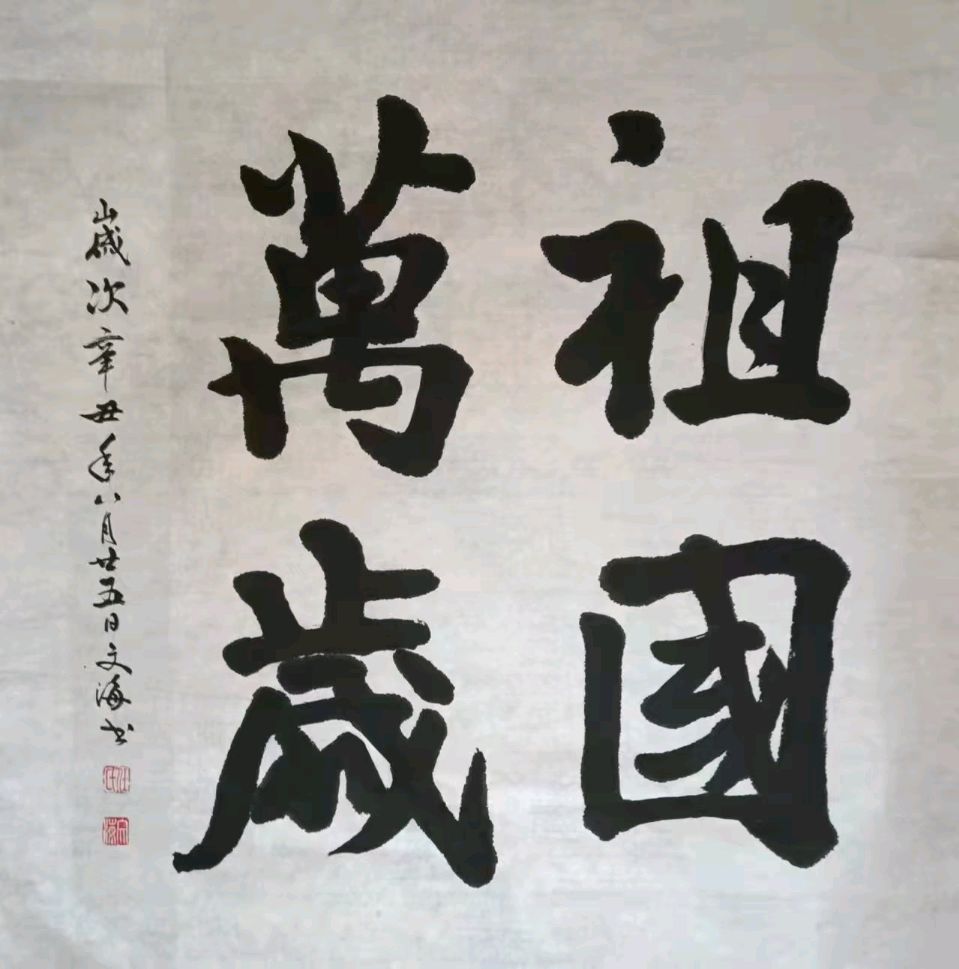 祖國
萬歲
歲次辛丑年八月廿五日文海书